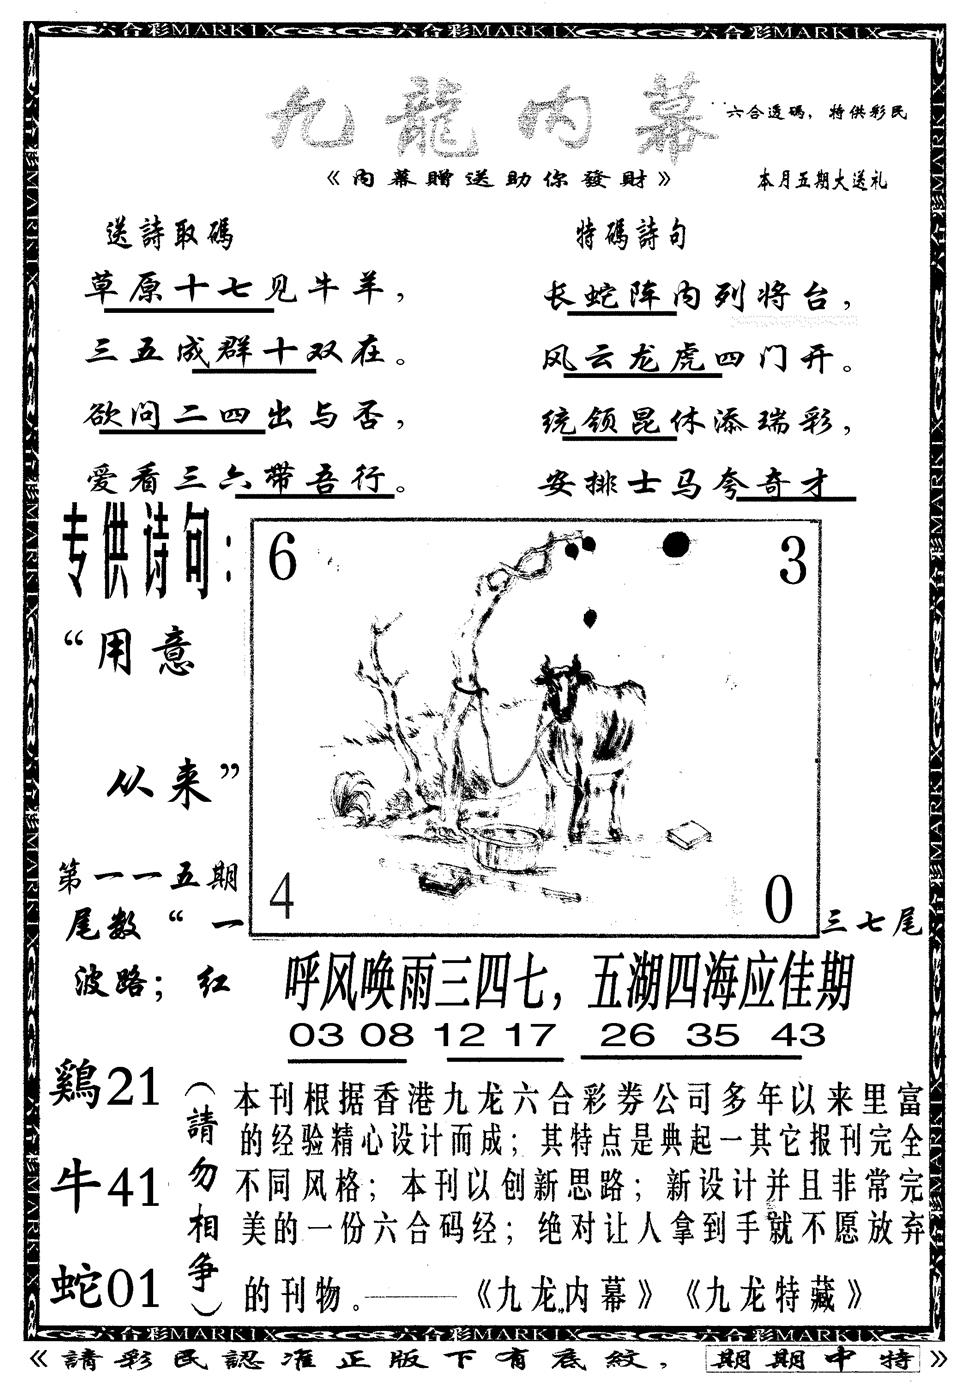 六合彩MARKIX 六合彩MARKIX 六合彩MARKIX
九龍内幕
六合透碼，特供彩民
《内幕贈送助你發財》
本月五期大送礼
送詩取碼
草原十七见牛羊，
三五成群十双在。
欲问二四出与否，
爱看三六带吾行。
特碼詩句
长蛇阵内列将台，
风云龙虎四门开。
统领昆休添瑞彩，
安排士马夸奇才
专供诗句：
“用意
从来”
6
3
4
0
第一一五期
尾数“一
三七尾
波路；红
呼风唤雨三四七，五湖四海应佳期
03 08 12 17 26 35 43
鷄21
牛41
蛇01
（請勿相争）
本刊根据香港九龙六合彩券公司多年以来里富
的经验精心设计而成；其特点是典起一其它报刊完全
不同风格；本刊以创新思路；新设计并且非常完
美的一份六合码经；绝对让人拿到手就不愿放弃
的刊物。———《九龙内幕》《九龙特藏》
六合彩MARKIX 六合彩MARKIX 六合彩MARKIX
《請彩民認准正版下有底紋，期期中特》